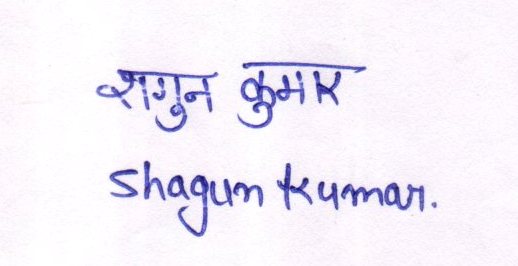 शगुन कुमार
Shagun Kumar.